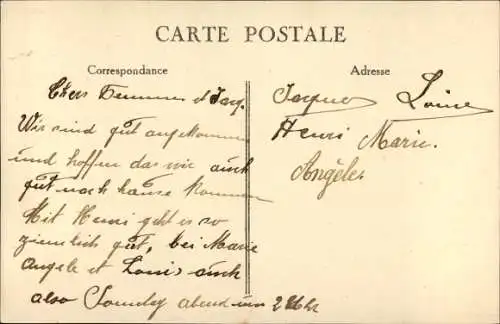 CARTE POSTALE
Correspondance
Adresse
Chers et Jaq.
Wir sind gut angekommen
und hoffen das wir auch
gut nach hause kommen
Mit Henri geht es so
ziemlich gut, bei Marie
Angele et Louis auch
also abend um 2 Uhr
Jaques Loine
Henri Marie.
Angèle